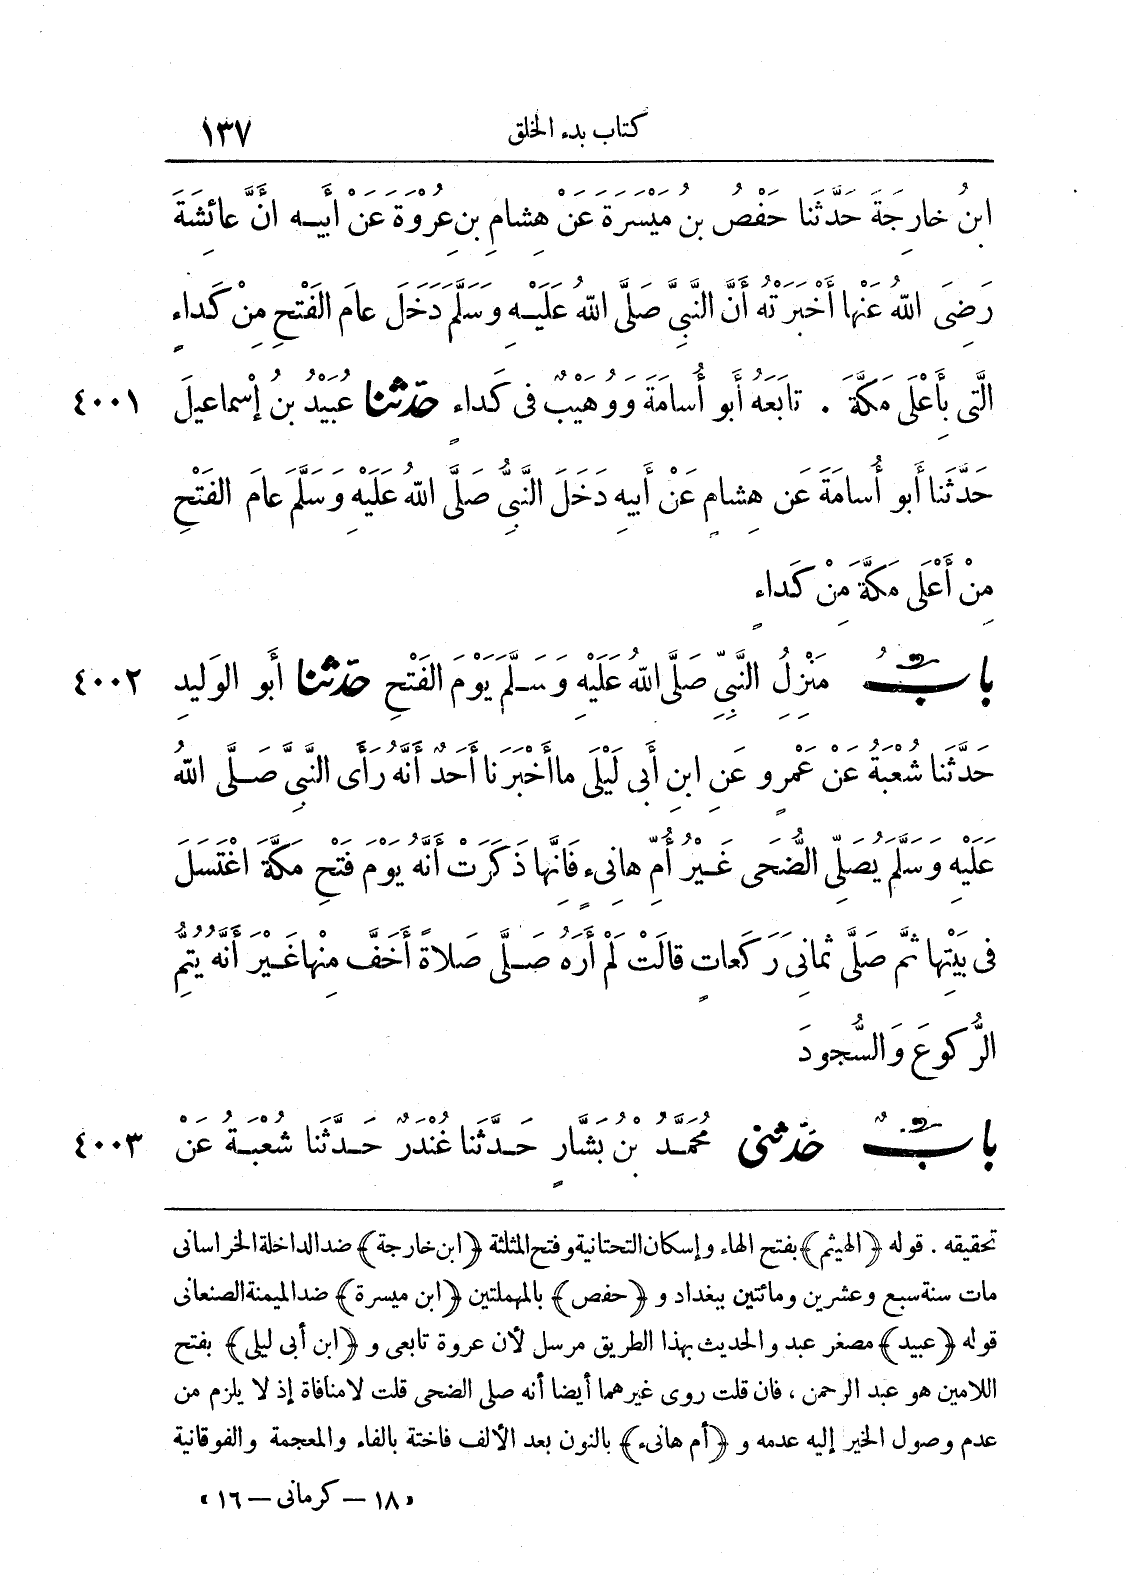 كتاب بدء الخلق ١٣٧
ابنُ خارِجَةَ حَدَّثَنا حَفْصُ بنُ مَيْسَرَةَ عَنْ هِشامِ بنِ عُرْوَةَ عَنْ أَبِيــهِ انَّ عائِشَةَ
رَضِىَ اللهُ عَنْها أَخْبَرَتْهُ أَنَّ النَّبِىَّ صَلَّى اللهُ عَلَيْــهِ وَسَلَّمَ دَخَلَ عامَ الفَتْحِ مِنْ كَداءٍ
الَّتى بِأَعْلَى مَكَّةَ . تابَعَهُ أَبو أُسامَةَ وَوُهَيْبٌ فى كَداءٍ حدّثنا عُبَيْدُ بنُ إِسْماعِيلَ ٤٠٠١
حَدَّثَنا أَبو أُسامَةَ عَن هِشامٍ عَنْ أَبِيهِ دَخَلَ النَّبِىُّ صَلَّى اللهُ عَلَيْهِ وَسَلَّمَ عامَ الفَتْحِ
مِنْ أَعْلَى مَكَّةَ مِنْ كَداءٍ
بابُ مَنْزِلُ النَّبِىِّ صَلَّى اللهُ عَلَيْهِ وَسَــلَّمَ يَوْمَ الفَتْحِ حدّثنا أَبو الوَلِيدِ ٤٠٠٢
حَدَّثَنا شُعْبَةُ عَنْ عَمْرٍو عَنِ ابنِ أَبِى لَيْلَى ما أَخْبَرَنا أَحَدٌ أَنَّهُ رَأَى النَّبِىَّ صَــلَّى اللهُ
عَلَيْهِ وَسَلَّمَ يُصَلِّى الضُّحَى غَــيْرُ أُمِّ هانِىءٍ فَإِنَّها ذَكَرَتْ أَنَّهُ يَوْمَ فَتْحِ مَكَّةَ اغْتَسَلَ
فى بَيْتِها ثُمَّ صَلَّى ثَمانِىَ رَكَعاتٍ قالَتْ لَمْ أَرَهُ صَــلَّى صَلاةً أَخَفَّ مِنْها غَــيْرَ أَنَّهُ يُتِمُّ
الرُّكُوعَ وَالسُّجودَ
بابٌ حَدّثنى مُحَمَّــدُ بْنُ بَشَّارٍ حَــدَّثَنا غُنْدَرٌ حَــدَّثَنا شُعْبَــةُ عَنْ ٤٠٠٣
تحقيقه . قوله ﴿الهيثم﴾ بفتح الهاء وإسكان التحتانية وفتح المثلثة ﴿ابن خارجة﴾ ضد الداخلة الخراسانى
مات سنة سبع وعشرين ومائتين ببغداد و ﴿حفص﴾ بالمهملتين ﴿ابن ميسرة﴾ ضد الميمنة الصنعانى
قوله ﴿عبيد﴾ مصغر عبد والحديث بهذا الطريق مرسل لأن عروة تابعى و ﴿ابن أبى ليلى﴾ بفتح
اللامين هو عبد الرحمن ، فان قلت روى غيرهما أيضا أنه صلى الضحى قلت لا منافاة إذ لا يلزم من
عدم وصول الخبر إليه عدمه و ﴿أم هانىء﴾ بالنون بعد الألف فاختة بالفاء والمعجمة والفوقانية
« ١٨ – كرمانى – ١٦ »